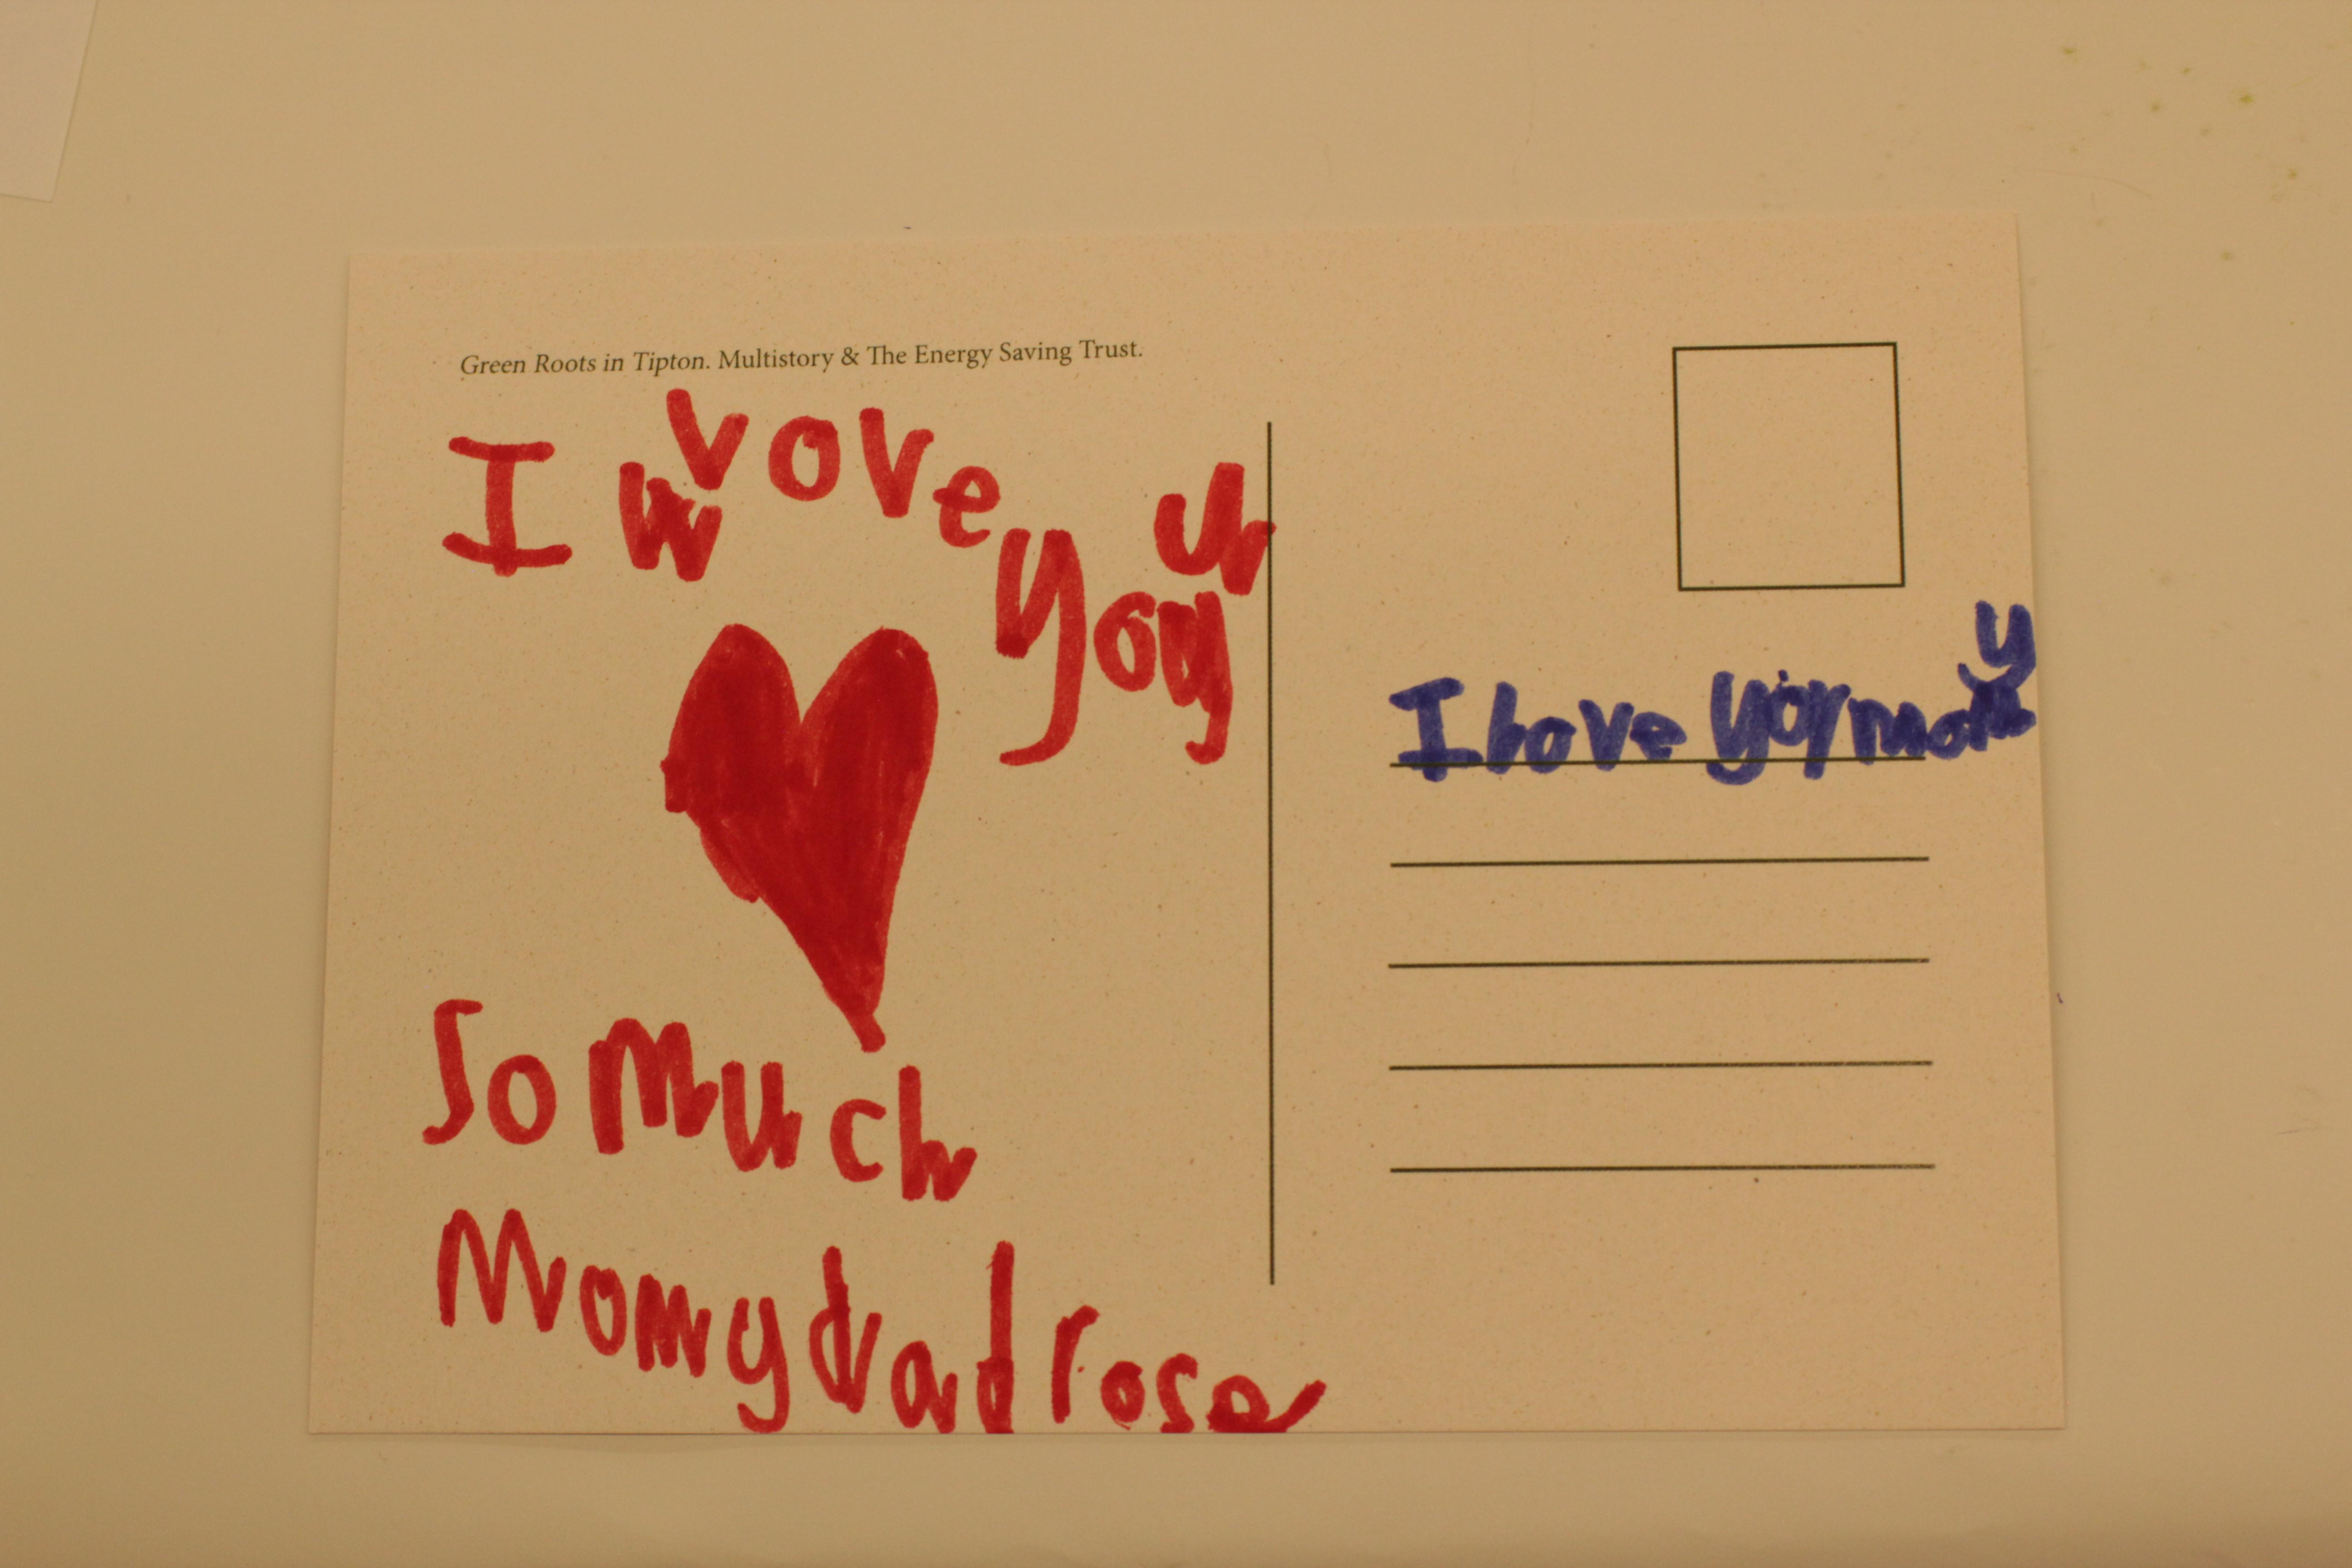 Green Roots in Tipton. Multistory & The Energy Saving Trust.
I vove you
So much
Momy dad rose
I love you momy